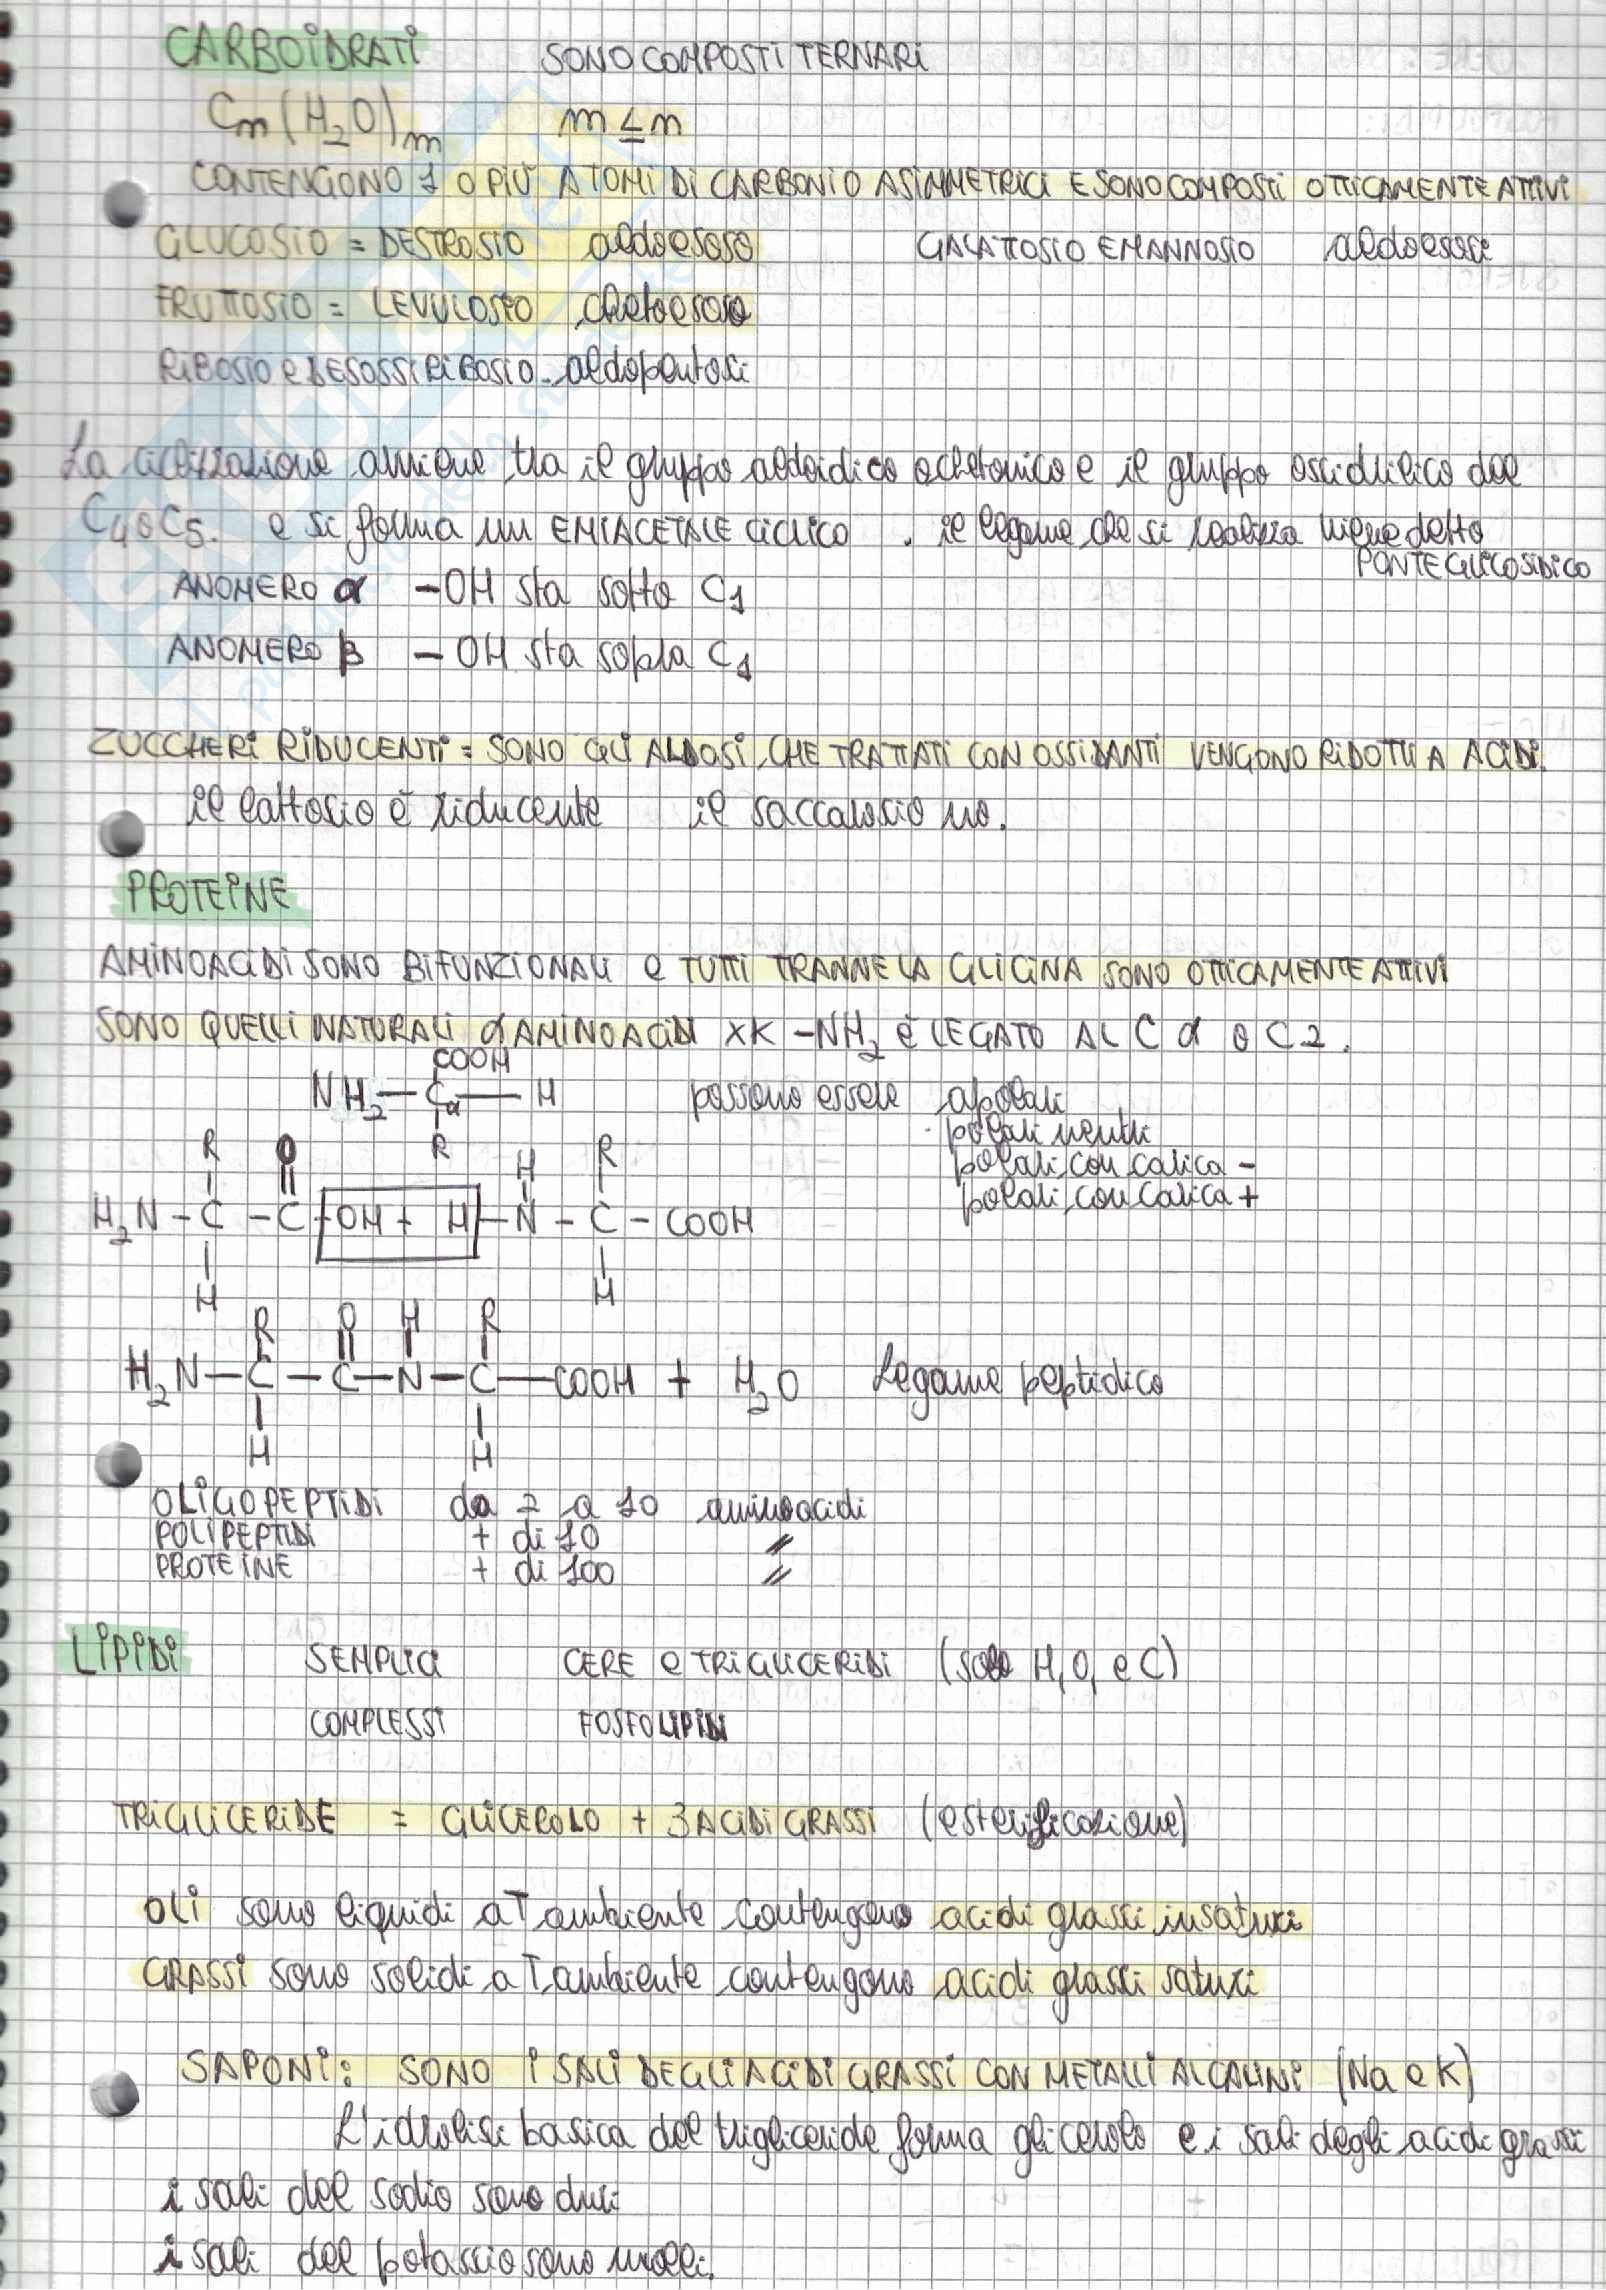 CARBOIDRATI SONO COMPOSTI TERNARI
Cn(H2O)m m ≤ n
CONTENGONO 1 O PIÙ ATOMI DI CARBONIO ASIMMETRICI E SONO COMPOSTI OTTICAMENTE ATTIVI
GLUCOSIO = DESTROSIO aldoesoso GALATTOSIO E MANNOSIO aldoesosi
FRUTTOSIO = LEVULOSIO chetoesoso
RIBOSIO e DESOSSIRIBOSIO - aldopentosi
La ciclizzazione avviene tra il gruppo aldeidico o chetonico e il gruppo ossidrilico del
C4 o C5. e si forma un EMIACETALE CICLICO. il legame che si realizza viene detto
PONTE GLICOSIDICO
ANOMERO α -OH sta sotto C1
ANOMERO β - OH sta sopra C1
ZUCCHERI RIDUCENTI = SONO GLI ALDOSI, CHE TRATTATI CON OSSIDANTI VENGONO RIDOTTI A ACIDI.
il lattosio è riducente il saccarosio no.
PROTEINE
AMINOACIDI SONO BIFUNZIONALI e TUTTI TRANNE LA GLICINA SONO OTTICAMENTE ATTIVI
SONO QUELLI NATURALI α AMINOACIDI XK -NH2 è LEGATO AL C α o C2.
COOH
NH2 - Cα - H possono essere apolari
R polari neutri
polari con carica -
polari con carica +
R O H R
H2N - C - C - OH + H - N - C - COOH
H H
R O H R
H2N - C - C - N - C - COOH + H2O Legame peptidico
H H
OLIGOPEPTIDI da 2 a 10 aminoacidi
POLIPEPTIDI + di 10 "
PROTEINE + di 100 "
LIPIDI SEMPLICI CERE e TRIGLICERIDI (solo H, O, e C)
COMPLESSI FOSFOLIPIDI
TRIGLICERIDE = GLICEROLO + 3 ACIDI GRASSI (esterificazione)
OLI sono liquidi a T ambiente contengono acidi grassi insaturi
GRASSI sono solidi a T ambiente contengono acidi grassi saturi
SAPONI: SONO I SALI DEGLI ACIDI GRASSI CON METALLI ALCALINI (Na e K)
L'idrolisi basica del trigliceride forma glicerolo e i sali degli acidi grassi
i sali del sodio sono duri
i sali del potassio sono molli.